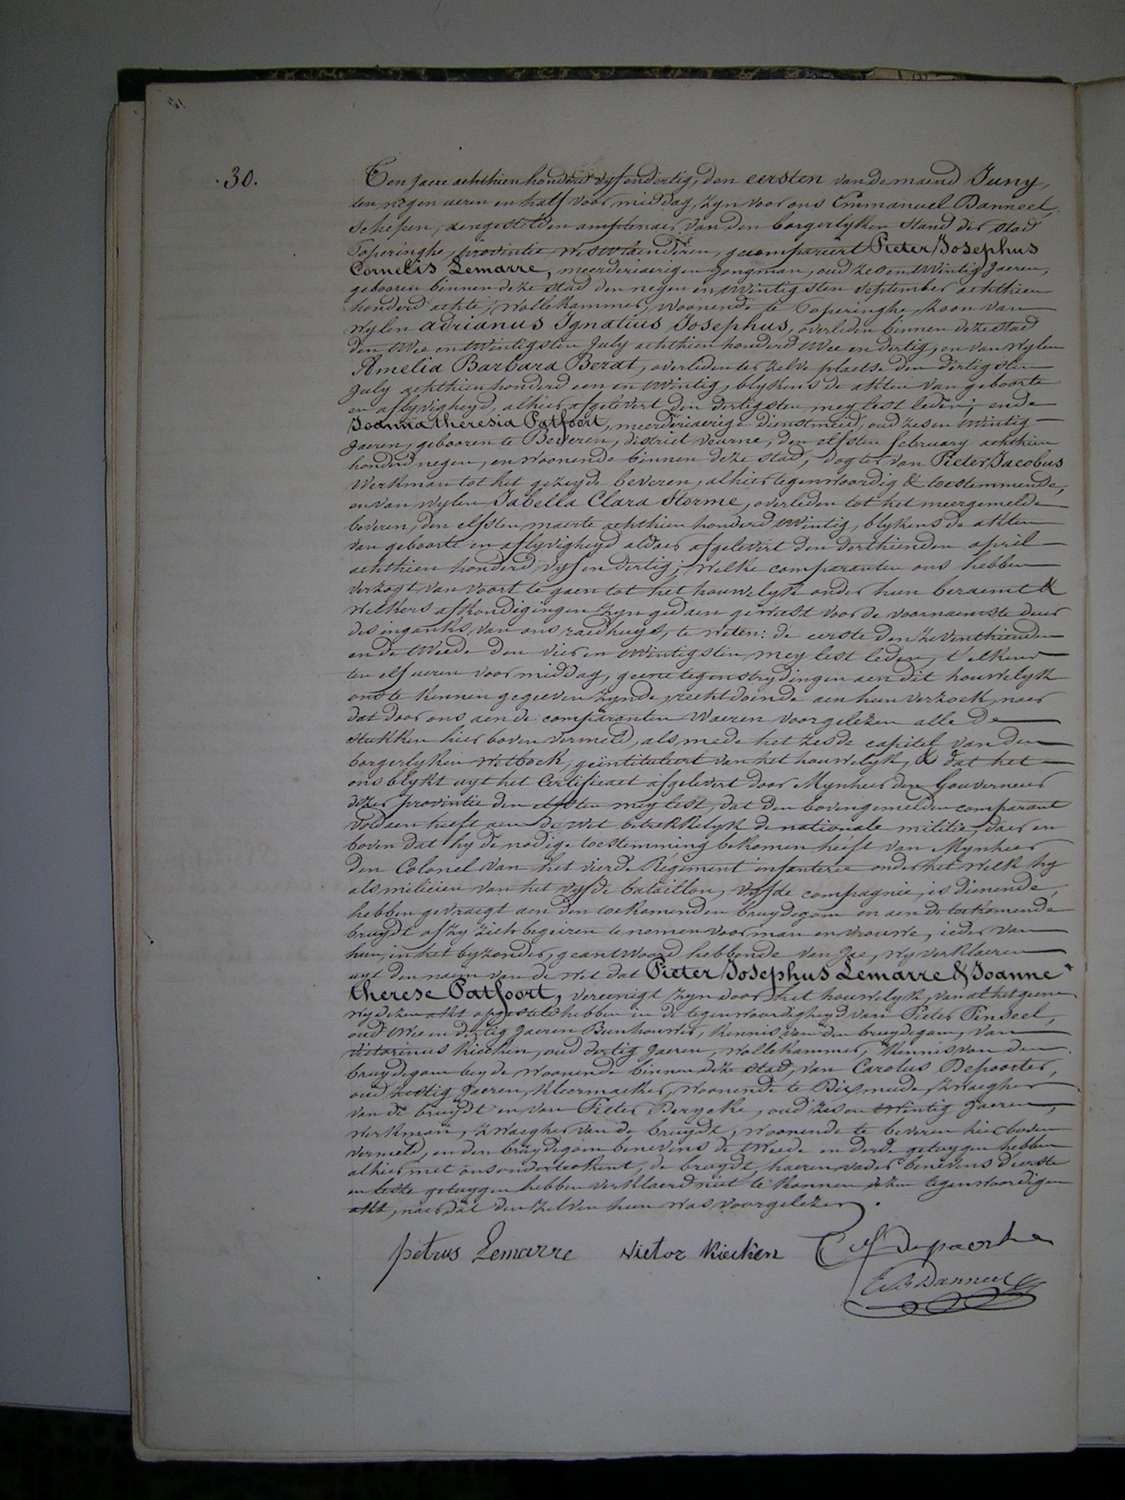 30.
Ten jaere achthien honderd vyf en dertig, den eersten van de maend Juny,
ten negen ueren en half voor middag, zyn voor ons Emmanuel Danneel,
schepen, aengestelden amptenaer van den borgerlyken stand der stad
Poperinghe, provintie Westvlaenderen, gecompareert Pieter Josephus
Cornelis Lemarre, meerderjaerigen jongman, oud zes en twintig jaeren,
gebooren binnen deze stad den negen en twintigsten september achthien
honderd achte, wollekammer, woonende te Poperinghe, zoon van
wylen adrianus Ignatius Josephus, overleden binnen deze stad
den twee en twintigsten July achthien honderd twee en dertig, en van wylen
Amelia Barbara Berat, overleden ter zelve plaetse den dertigsten
July achthien honderd een en twintig, blykens de akten van geboorte
en aflyvigheyd, alhier afgelevert den dertigsten mey lest leden; ende
Joanna theresia Patfoort, meerderjaerige dienstmeid, oud zes en twintig
jaeren, gebooren te Beveren, district veurne, den elfsten february achthien
honderd negen, en woonende binnen deze stad, dogter van Pieter Jacobus
werkman tot het gezeyde beveren, alhier tegenwoordig & toestemmende,
en van wylen Isabella Clara Sterme, overleden tot het meergemelde
beveren, den elfsten maerte achthien honderd twintig, blykens de akten
van geboorte en aflyvigheyd aldaer afgelevert den derthienden april
achthien honderd vyf en dertig; welke comparanten ons hebben
verzogt van voort te gaen tot het houwelyk onder hun beraemt &
welkers afkondigingen zyn gedaen geweest voor de voornaemste deur
des ingangs van ons raedhuys, te weten: de eerste den zeventhienden
en de tweede den vier en twintigsten mey lest leden, t'elkens
ten elf ueren voor middag, geene tegenstrydingen aen dit houwelyk
ons te kennen gegeeven zynde, recht doende aen hun verzoek, naer
dat door ons aen de comparanten waeren voorgelezen alle de
stukken hier boven vermeld, als mede het zesde capitel van den
borgerlyken wetboek, geïntituleert van het houwelyk, & dat het
ons blykt uyt het Certificaet afgelevert door Mynheer den Gouverneur
dezer provintie den elfsten mey lest, dat den bovengemelden comparant
voldaen heeft aen de wet betrekkelyk de nationale militie, daer en
boven dat hy de nodige toestemming bekomen heeft van Mynheer
den Colonel van het vierde Regiment infanterie onder het welk hy
als milicien van het vyfde bataillon, vyfde compagnie, is dienende,
hebben gevraegt aen den toekomenden bruydegom en aen de toekomende
bruydt of zy zich begeiren te nemen voor man en vrouwe, ieder van
hun, in het byzonder, geantwoord hebbende van Jae, wy verklaeren
uyt den naem van de wet dat Pieter Josephus Lemarre & Joanne
therese Patfoort, vereenigt zyn door het houwelyk, van al het geene
wy dezen akt opgestelt hebben in de tegenwoordigheyd van Pieter Pinseel,
oud twee en dertig jaeren, kennis van den bruydegom, van
victorinus Kieken, oud dertig jaeren, wollekammer, kennis van den
bruydegom beyde woonende binnen deze stad, van Carolus Depoorter,
oud zestig jaeren, kleermaeker, woonende te Dixmude, zwaegher
van de bruydt en van Pieter Deryche, oud zes en twintig jaeren,
werkman, zwaegher van de bruydt, woonende te beveren hier boven
vermeld, en den bruydegom benevens de tweede en derde getuygen hebben
alhier met ons onderteekent, de bruydt, haeren vader benevens d'eerste
en leste getuygen hebben verklaerd niet te konnen teken tegenwoordigen
akt, naer dat den zelven hun was voorgelezen.
petrus Lemarre victor Kiecken
E. Danneel